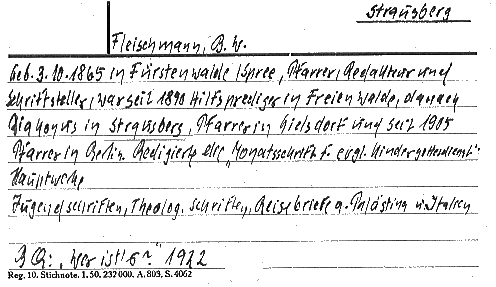 Strausberg
Fleischmann, B. W.
Geb. 3.10.1865 in Fürstenwalde/Spree, Pfarrer, Redakteur und
Schriftsteller, war seit 1890 Hilfsprediger in Freienwalde, danach
Diakonus in Strausberg, Pfarrer in Gielsdorf und seit 1905
Pfarrer in Berlin. Redigierte die "Monatsschrift f. evgl. Kindergottesdienst"
Hauptwerke
Jugendschriften, Theolog. Schriften, Reisebriefe a. Palästina u. Italien
BQ: "Wer ist's?" 1922
Reg. 10. Stichnote. I. 50. 232000. A. 803. S. 4062